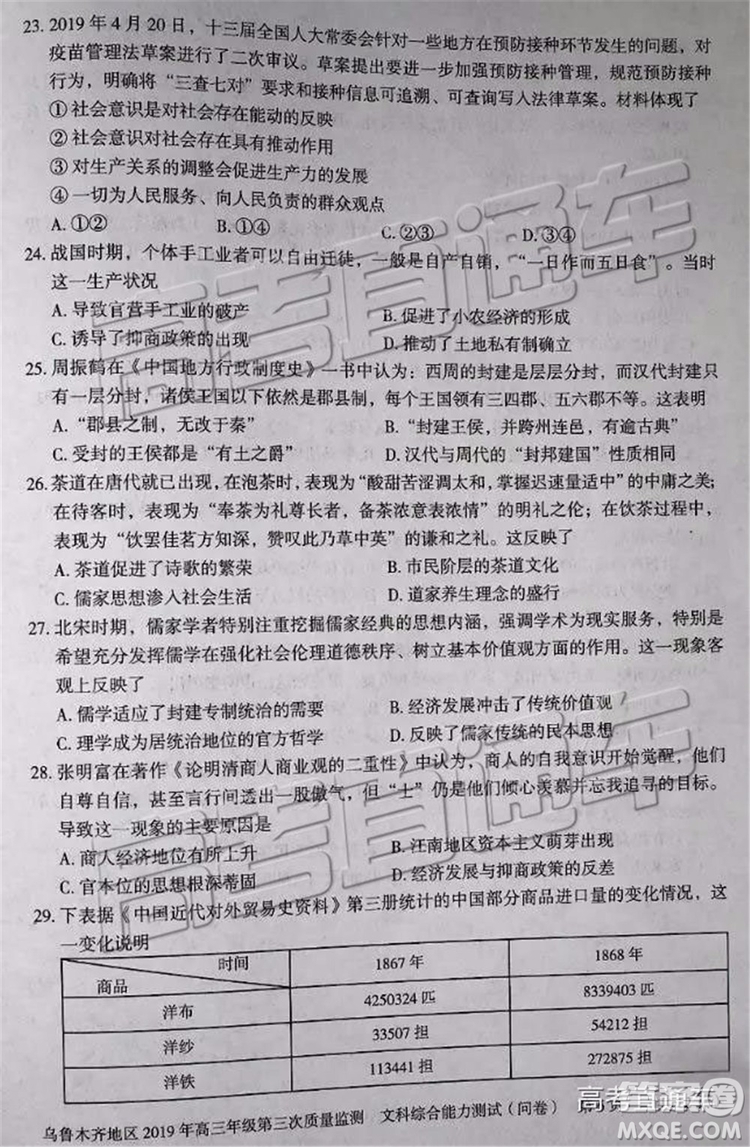 23. 2019 年 4 月 20 日，十三届全国人大常委会针对一些地方在预防接种环节发生的问题，对
疫苗管理法草案进行了二次审议。草案提出要进一步加强预防接种管理，规范预防接种
行为，明确将“三查七对”要求和接种信息可追溯、可查询写入法律草案。材料体现了
①社会意识是对社会存在能动的反映
②社会意识对社会存在具有推动作用
③对生产关系的调整会促进生产力的发展
④一切为人民服务、向人民负责的群众观点
A. ①② B. ①④ C. ②③ D. ③④
24. 战国时期，个体手工业者可以自由迁徙，一般是自产自销，“一日作而五日食”。当时
这一生产状况
A. 导致官营手工业的破产 B. 促进了小农经济的形成
C. 诱导了抑商政策的出现 D. 推动了土地私有制确立
25. 周振鹤在《中国地方行政制度史》一书中认为：西周的封建是层层分封，而汉代封建只
有一层分封，诸侯王国以下依然是郡县制，每个王国领有三四郡、五六郡不等。这表明
A. “郡县之制，无改于秦” B. “封建王侯，并跨州连邑，有逾古典”
C. 受封的王侯都是“有土之爵” D. 汉代与周代的“封邦建国”性质相同
26. 茶道在唐代就已出现，在泡茶时，表现为“酸甜苦涩调太和，掌握迟速量适中”的中庸之美；
在待客时，表现为“奉茶为礼尊长者，备茶浓意表浓情”的明礼之伦；在饮茶过程中，
表现为“饮罢佳茗方知深，赞叹此乃草中英”的谦和之礼。这反映了
A. 茶道促进了诗歌的繁荣 B. 市民阶层的茶道文化
C. 儒家思想渗入社会生活 D. 道家养生理念的盛行
27. 北宋时期，儒家学者特别注重挖掘儒家经典的思想内涵，强调学术为现实服务，特别是
希望充分发挥儒学在强化社会伦理道德秩序、树立基本价值观方面的作用。这最能从客
观上反映了
A. 儒学适应了封建专制统治的需要 B. 经济发展冲击了传统价值观
C. 理学成为居统治地位的官方哲学 D. 反映了儒家传统的民本思想
28. 张明富在著作《论明清商人商业观的二重性》中认为，商人的自我意识开始觉醒，他们
自尊自信，甚至言行间透出一股傲气，但“士”仍是他们倾心羡慕并忘我追寻的目标。
导致这一现象的主要原因是
A. 商人经济地位有所上升 B. 江南地区资本主义萌芽出现
C. 官本位的思想根深蒂固 D. 经济发展与抑商政策的反差
29. 下表据《中国近代对外贸易史资料》第三册统计的中国部分商品进口量的变化情况，这
一变化说明
时间 1867 年 1868 年
商品
洋布 4250324 匹 8339403 匹
洋纱 33507 担 54212 担
洋铁 113441 担 272875 担
乌鲁木齐地区 2019 年高三年级第三次质量监测 文科综合能力测试（问卷）
高考直通车
高考直通车
高考直通车
MXQE.COM